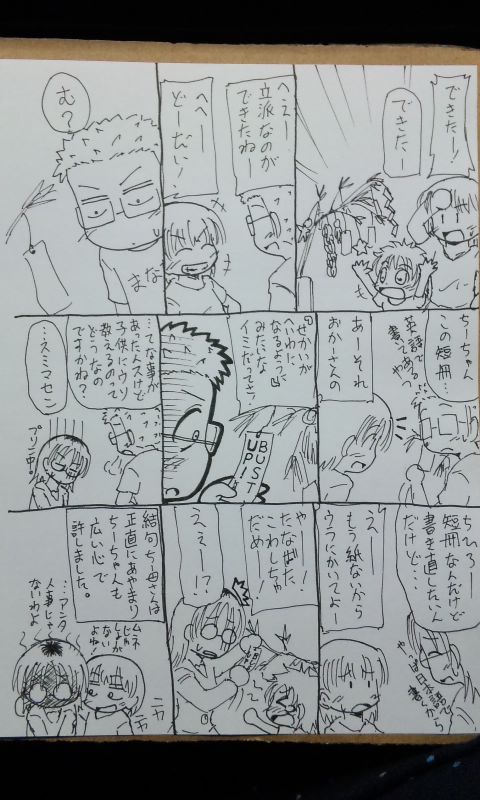 できたー!
できたー
へぇー
立派なのが
できたねー
へへー
どーだい!
む?
まな
ちーちゃん
この短冊…
英語で
書いてある?
あーそれ
おかーさんの
「せかいが
へいわに
なるように」
みたいな
イミだってさ!
BUST
UP!
…てな事が
あったんスけど
子供にウソ
教えるのって
どうなの
ですかね?
…スミマセン
プリン中。
ちひろー
短冊なんだけど
書き直したいん
だけど…
えー
もう紙ないから
ウラにかいてよー
やー!
たなばた
こわしちゃ
だめー!
ええー!?
結局ち母さんは
正直にあやまり
ちーちゃんも
広い心で
許しました。
ムネ
しょーが
ないわよね!
ニヤ
ニヤ
…アンタ
人事じゃ
ないわよ